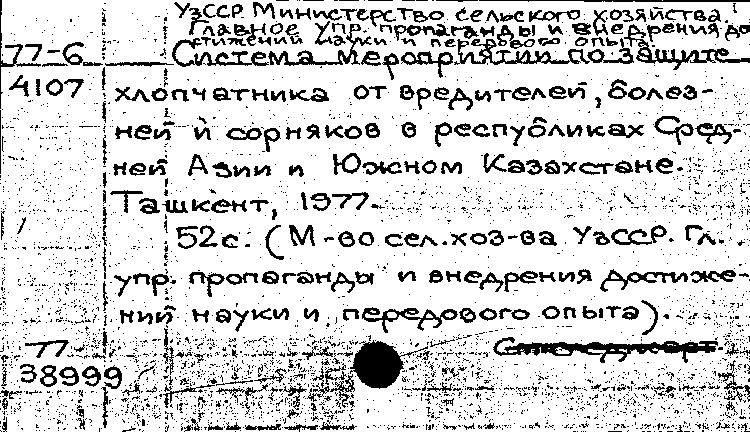 УзССР Министерство сельского хозяйства.
Главное упр. пропаганды и внедрения до
стижений науки и передового опыта
77-6 Система мероприятий по защите
4107 хлопчатника от вредителей, болез-
ней и сорняков в республиках Сред-
ней Азии и Южном Казахстане.
Ташкент, 1977.
52с. (М-во сел.хоз-ва УзССР. Гл.
упр. пропаганды и внедрения достиже-
ний науки и передового опыта).
77-
38999